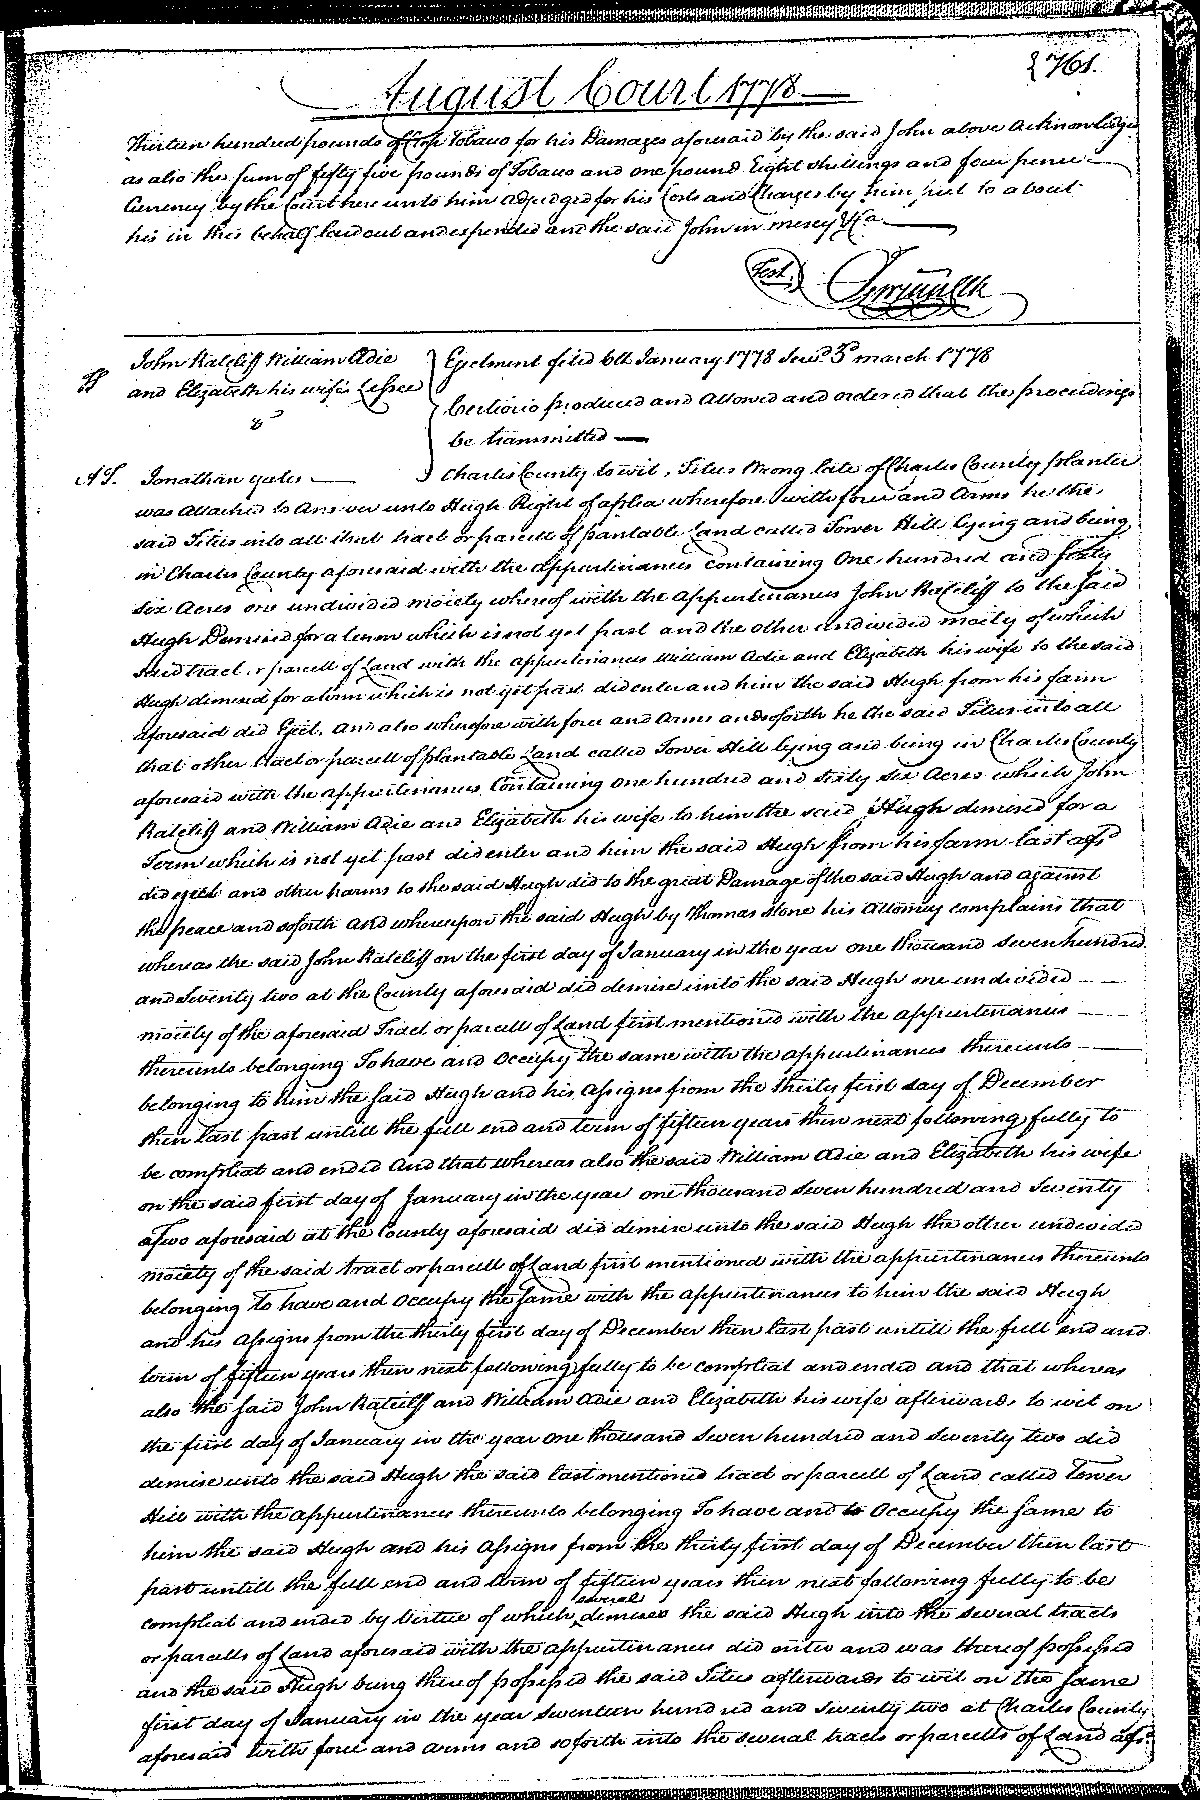 761.
August Court 1778
Thirteen hundred pounds of Crop Tobacco for his Damages aforesaid by the said John above acknowledged
as also the sum of fifty five pounds of Tobacco and one pound Eight shillings and four pence
Currency by the Court here unto him adjudged for his Costs and Charges by him put to about
his in this behalf laid out and expended and the said John in mercy &Ca
Test.
John Ratcliff William Adie
and Elizabeth his wife's Lessee
vs
AT. Jonathan Yates
Ejectment filed 6th January 1778 Serd. 3d march 1778
Certiorio produced and Allowed and ordered that the proceedings
be transmitted
Charles County to wit, Titus Wrong late of Charles County planter
was Attached to Answer unto Hugh Right of a plea wherefore with force and Arms he the
said Titus into all that tract or parcell of plantable Land called Tower Hill lying and being
in Charles County aforesaid with the appurtenances containing One hundred and sixty
six Acres one undivided moiety whereof with the appurtenances John Ratcliff to the said
Hugh Demised for a term which is not yet past and the other undivided moity of which
said tract or parcell of Land with the appurtenances William Adie and Elizabeth his wife to the said
Hugh demised for a term which is not yet past did enter and him the said Hugh from his farm
aforesaid did Eject, and also wherefore with force and Arms and soforth he the said Titus into all
that other tract or parcell of plantable Land called Tower Hill lying and being in Charles County
aforesaid with the appurtenances Containing one hundred and sixty six Acres which John
Ratcliff and William Adie and Elizabeth his wife to him the said Hugh demised for a
Term which is not yet past did enter and him the said Hugh from his farm last afsd
did eject and other harms to the said Hugh did to the great Damage of the said Hugh and against
the peace and soforth And whereupon the said Hugh by Thomas Stone his Attorney complains that
whereas the said John Ratcliff on the first day of January in the year one thousand seven hundred
and seventy two at the County aforesaid did demise unto the said Hugh one undivided
moiety of the aforesaid Tract or parcell of Land first mentioned with the appurtenances
thereunto belonging To have and Occupy the same with the appurtenances thereunto
belonging to him the said Hugh and his Assigns from the thirty first day of December
then last past untill the full end and term of fifteen years then next following fully to
be compleat and ended And that whereas also the said William Adie and Elizabeth his wife
on the said first day of January in the year one thousand seven hundred and seventy
Two aforesaid at the County aforesaid did demise unto the said Hugh the other undivided
moiety of the said tract or parcell of Land first mentioned with the appurtenances thereunto
belonging To have and Occupy the same with the appurtenances to him the said Hugh
and his Assigns from the thirty first day of December then last past untill the full end and
term of fifteen years then next following fully to be compleat and ended and that whereas
also the said John Ratcliff and William Adie and Elizabeth his wife afterwards to wit on
the first day of January in the year one thousand seven hundred and seventy two did
demise unto the said Hugh the said last mentioned tract or parcell of Land called Tower
Hill with the appurtenances thereunto belonging To have and to Occupy the same to
him the said Hugh and his Assigns from the thirty first day of December then last
past untill the full end and term of fifteen years then next following fully to be
compleat and ended by Virtue of which several demises the said Hugh into the several tracts
or parcells of Land aforesaid with the appurtenances did enter and was thereof possessed
and the said Hugh being thereof possessed the said Titus afterwards to wit on the same
first day of January in the year seventeen hundred and seventy two at Charles County
aforesaid with force and arms and soforth into the several tracts or parcells of Land afsd.